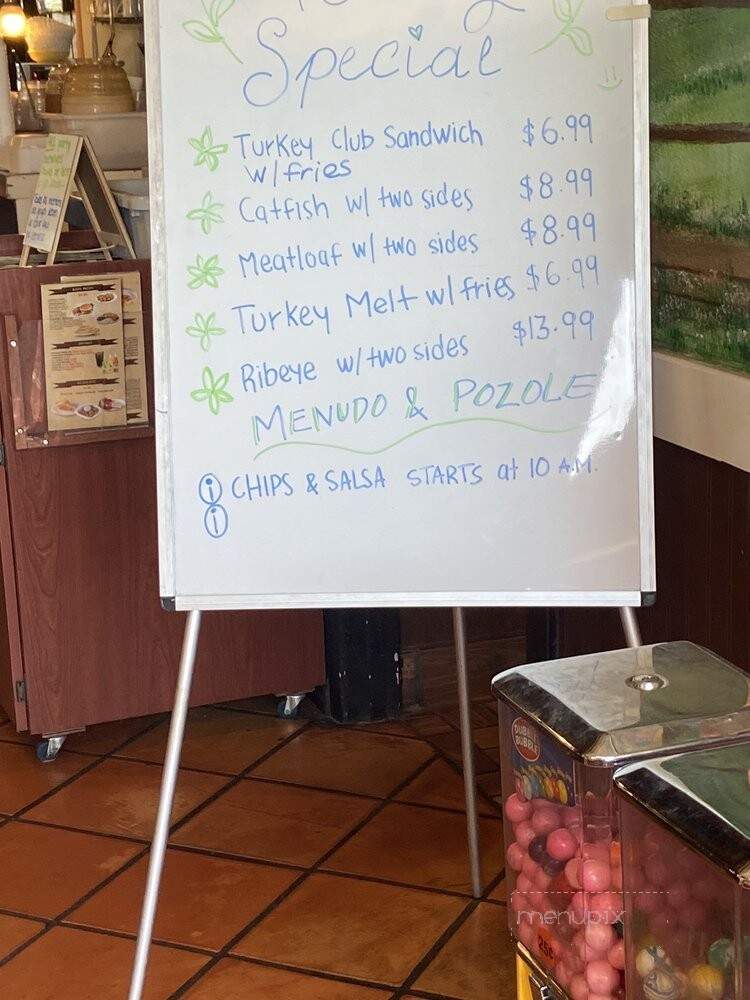 Special
Turkey Club Sandwich $6.99
w/fries
Catfish w/ two sides $8.99
Meatloaf w/ two sides $8.99
Turkey Melt w/fries $6.99
Ribeye w/two sides $13.99
MENUDO & POZOLE
CHIPS & SALSA STARTS at 10 A.M.
DUBBLE BUBBLE
25¢
menupix